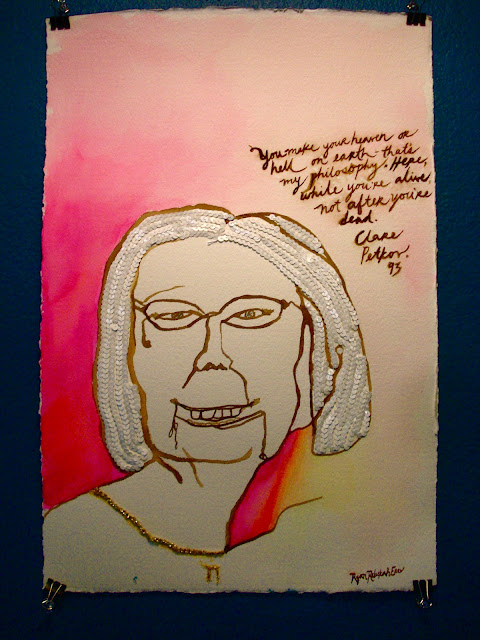 You make your heaven or
hell on earth - that's
my philosophy. Here,
while you're alive,
not after you're
dead.
Clare
Petkov.
93